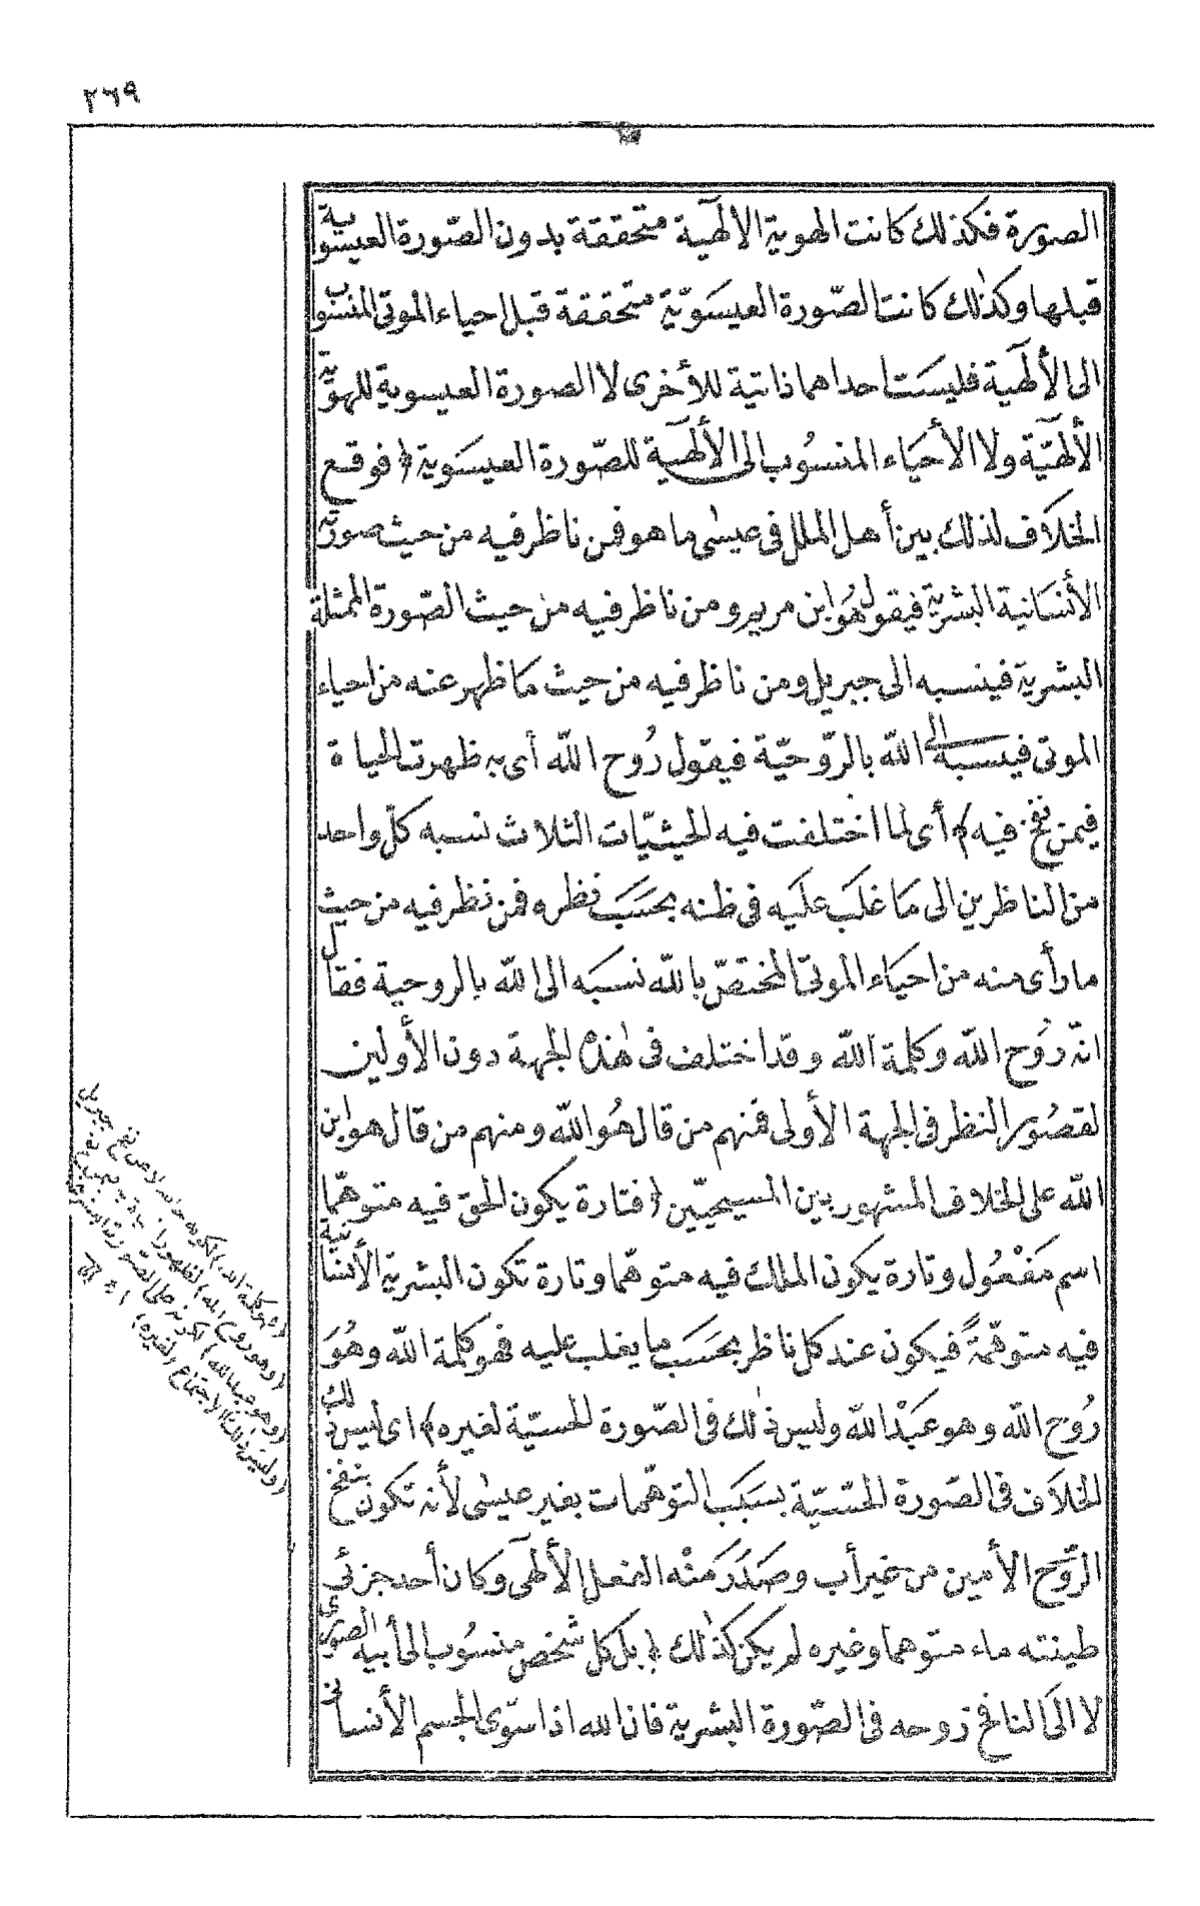 ٢٦٩
الصورة فكذلك كانت الهوية الالٓهية متحققة بدون الصّورة العيسوية
قبلها وكذٰلك كانت الصّورة العيسَوّية متحققة قبل احياء الموتى المنسوب
الى الألٓهية فليسَت احداهما ذاتية للأخرى لا الصورة العيسوية للهوّية
الألٓهيّة ولا الأحيَاء المنسُوب الى الألٓهية للصّورة العيسَوية ﴿ فوقع
الخلاَف لذلك بين أهل الملل فى عيسٰى ما هو فمن ناظر فيه من حيث صورته
الأنسَانية البشريّة فيقول هُو ابن مريم ومن ناظر فيه من حيث الصّورة الممثلة
البشرية فينسبه الى جبريل ومن ناظر فيه من حيث مَا ظهر عنه من احياء
الموتى فينسبه الى اللّه بالرّوحيّة فيقول رُوح اللّه أى به ظهرت الحياة
فيمن نفخ فيه ﴾ أى لما اختلفت فيه الحيثيّات الثلاث نسبه كلّ واحد
من الناظرين الى مَا غلَب علَيه فى ظنه بحسَب نظره فمن نظر فيه من حيث
ما رأى منه من احيَاء الموتى المختصّ باللّه نسبَه الى اللّه بالروحية فقال
انّه رُوح اللّه وكلمة اللّه وقد اختلف فى هٰذه الجهة دون الأولين
لقصُور النظر فى الجهة الأولى فمنهم من قال هُو اللّه ومنهم من قال هو ابن
اللّه على الخلاف المشهور بين المسيحيّين ﴿ فتارة يكون الحقّ فيه متوهّما
اسم مَفْعُول وتارة يكون الملك فيه متوهّما وتارة تكون البشرية الأنسانية
فيه متوهّمةً فيكون عند كل ناظر بحسَب ما يغلب عليه فهو كلمة اللّه وهُوَ
رُوح اللّه وهو عَبْد اللّه وليس ذٰلك فى الصّورة الحسيّة لغيره ﴾ اى ليس ذلك
الخلاَف فى الصّورة الحسّيّة بسبَب التوهّمات بغير عيسٰى لأنه تكون بنفخ
الرّوح الأمين من غير أب وصَدَرَ منْه الفعل الألٓهى وكان أحد جزئى
طينته ماء متوهما وغيره لم يكن كذٰلك ﴿ بل كل شخص منسُوب الى أبيه الصورى
لا الَى النافخ روحه فى الصّورة البشرية فان الله اذا سوّى الجسم الأنسانى
(فهو كلمة الله)
(وهو روح الله)
(وهو عبد الله)
(وليس ذلك)